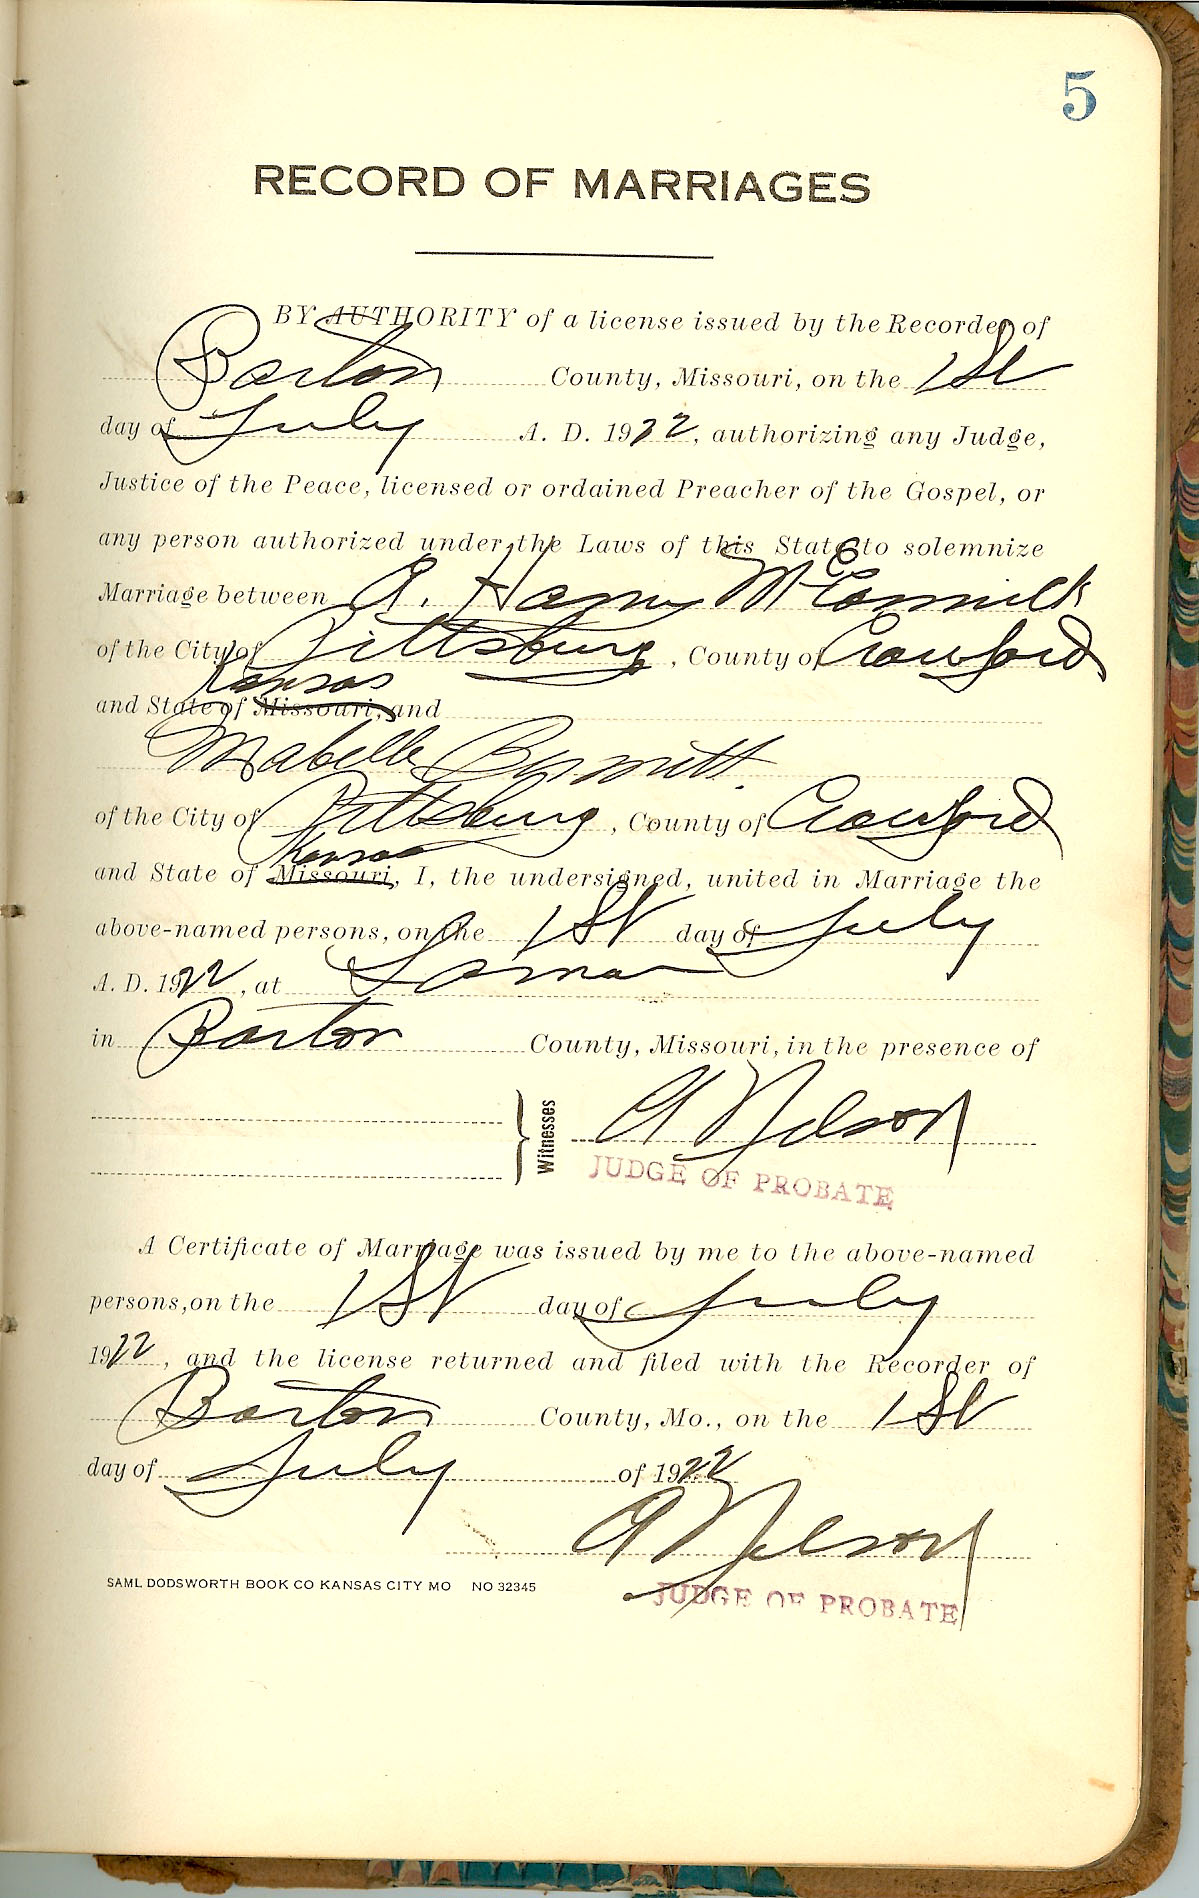 5
RECORD OF MARRIAGES
BY AUTHORITY of a license issued by the Recorder of
Barton County, Missouri, on the 1St
day of July A. D. 1922, authorizing any Judge,
Justice of the Peace, licensed or ordained Preacher of the Gospel, or
any person authorized under the Laws of this State to solemnize
Marriage between A. Harry McCormick
of the City of Pittsburg, County of Crawford
Kansas
and State of Missouri, and
Mabelle
of the City of Pittsburg, County of Crawford
Kansas
and State of Missouri, I, the undersigned, united in Marriage the
above-named persons, on the 1St day of July
A. D. 1922, at Lamar
in Barton County, Missouri, in the presence of
Witnesses
A Nelson
JUDGE OF PROBATE
A Certificate of Marriage was issued by me to the above-named
persons, on the 1St day of July
1922, and the license returned and filed with the Recorder of
Barton County, Mo., on the 1St
day of July of 1922
A Nelson
SAML DODSWORTH BOOK CO KANSAS CITY MO NO 32345
JUDGE OF PROBATE